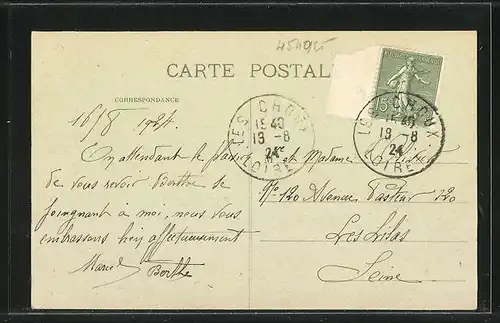 454925
CARTE POSTALE
CORRESPONDANCE
16/8 1924
En attendant le plaisir
de vous revoir Berthe se
joignant à moi, nous vous
embrassons bien affectueusement
Marcel Berthe
LES CHOUX
15 40
19 - 8
24
LOIRET
15c
LES CHOUX
15 40
19 - 8
24
LOIRET
et Madame
No 120 Avenue Pasteur 120
Les Lilas
Seine